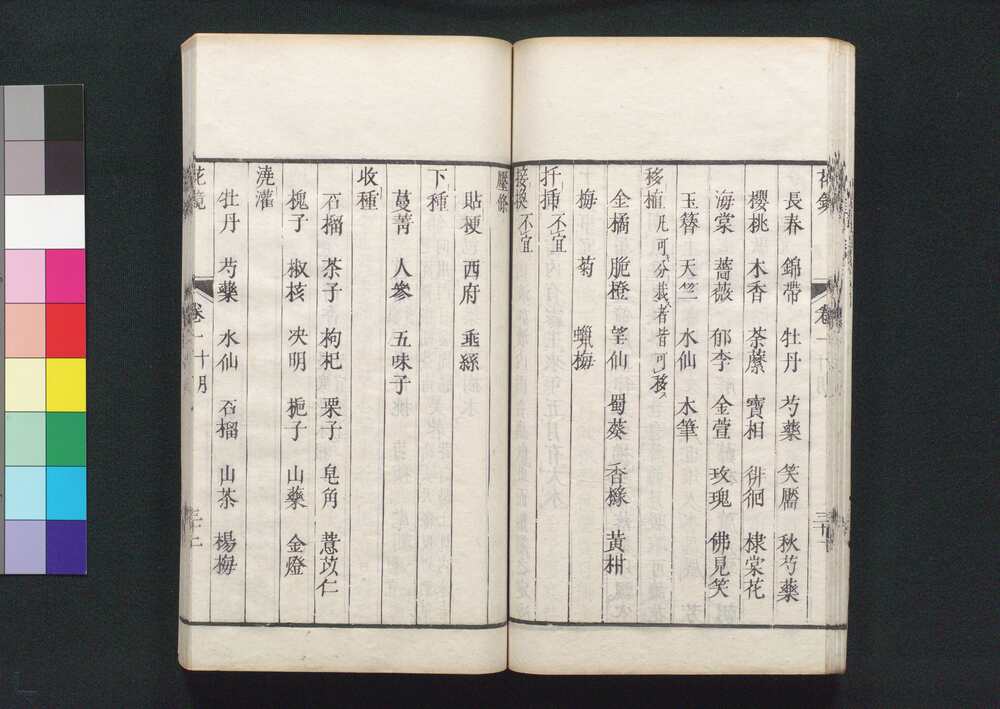 長春 錦帶 牡丹 芍藥 笑靨 秋芍藥
櫻桃 木香 荼蘼 寶相 徘徊 棣棠花
海棠 薔薇 郁李 金萱 玫瑰 佛見笑
玉簪 天竺 水仙 木筆
移植 凡可分栽者皆可移
金橘 脆橙 望仙 蜀葵 香櫞 黃柑
梅 菊 蠟梅
扦插 不宜
接換 不宜
壓條
貼梗 西府 垂絲
下種
蔓菁 人參 五味子
收種
石榴 茶子 枸杞 栗子 皂角 薏苡仁
槐子 椒核 決明 梔子 山藥 金燈
澆灌
牡丹 芍藥 水仙 石榴 山茶 楊梅
花鏡 卷一 十月 三十二